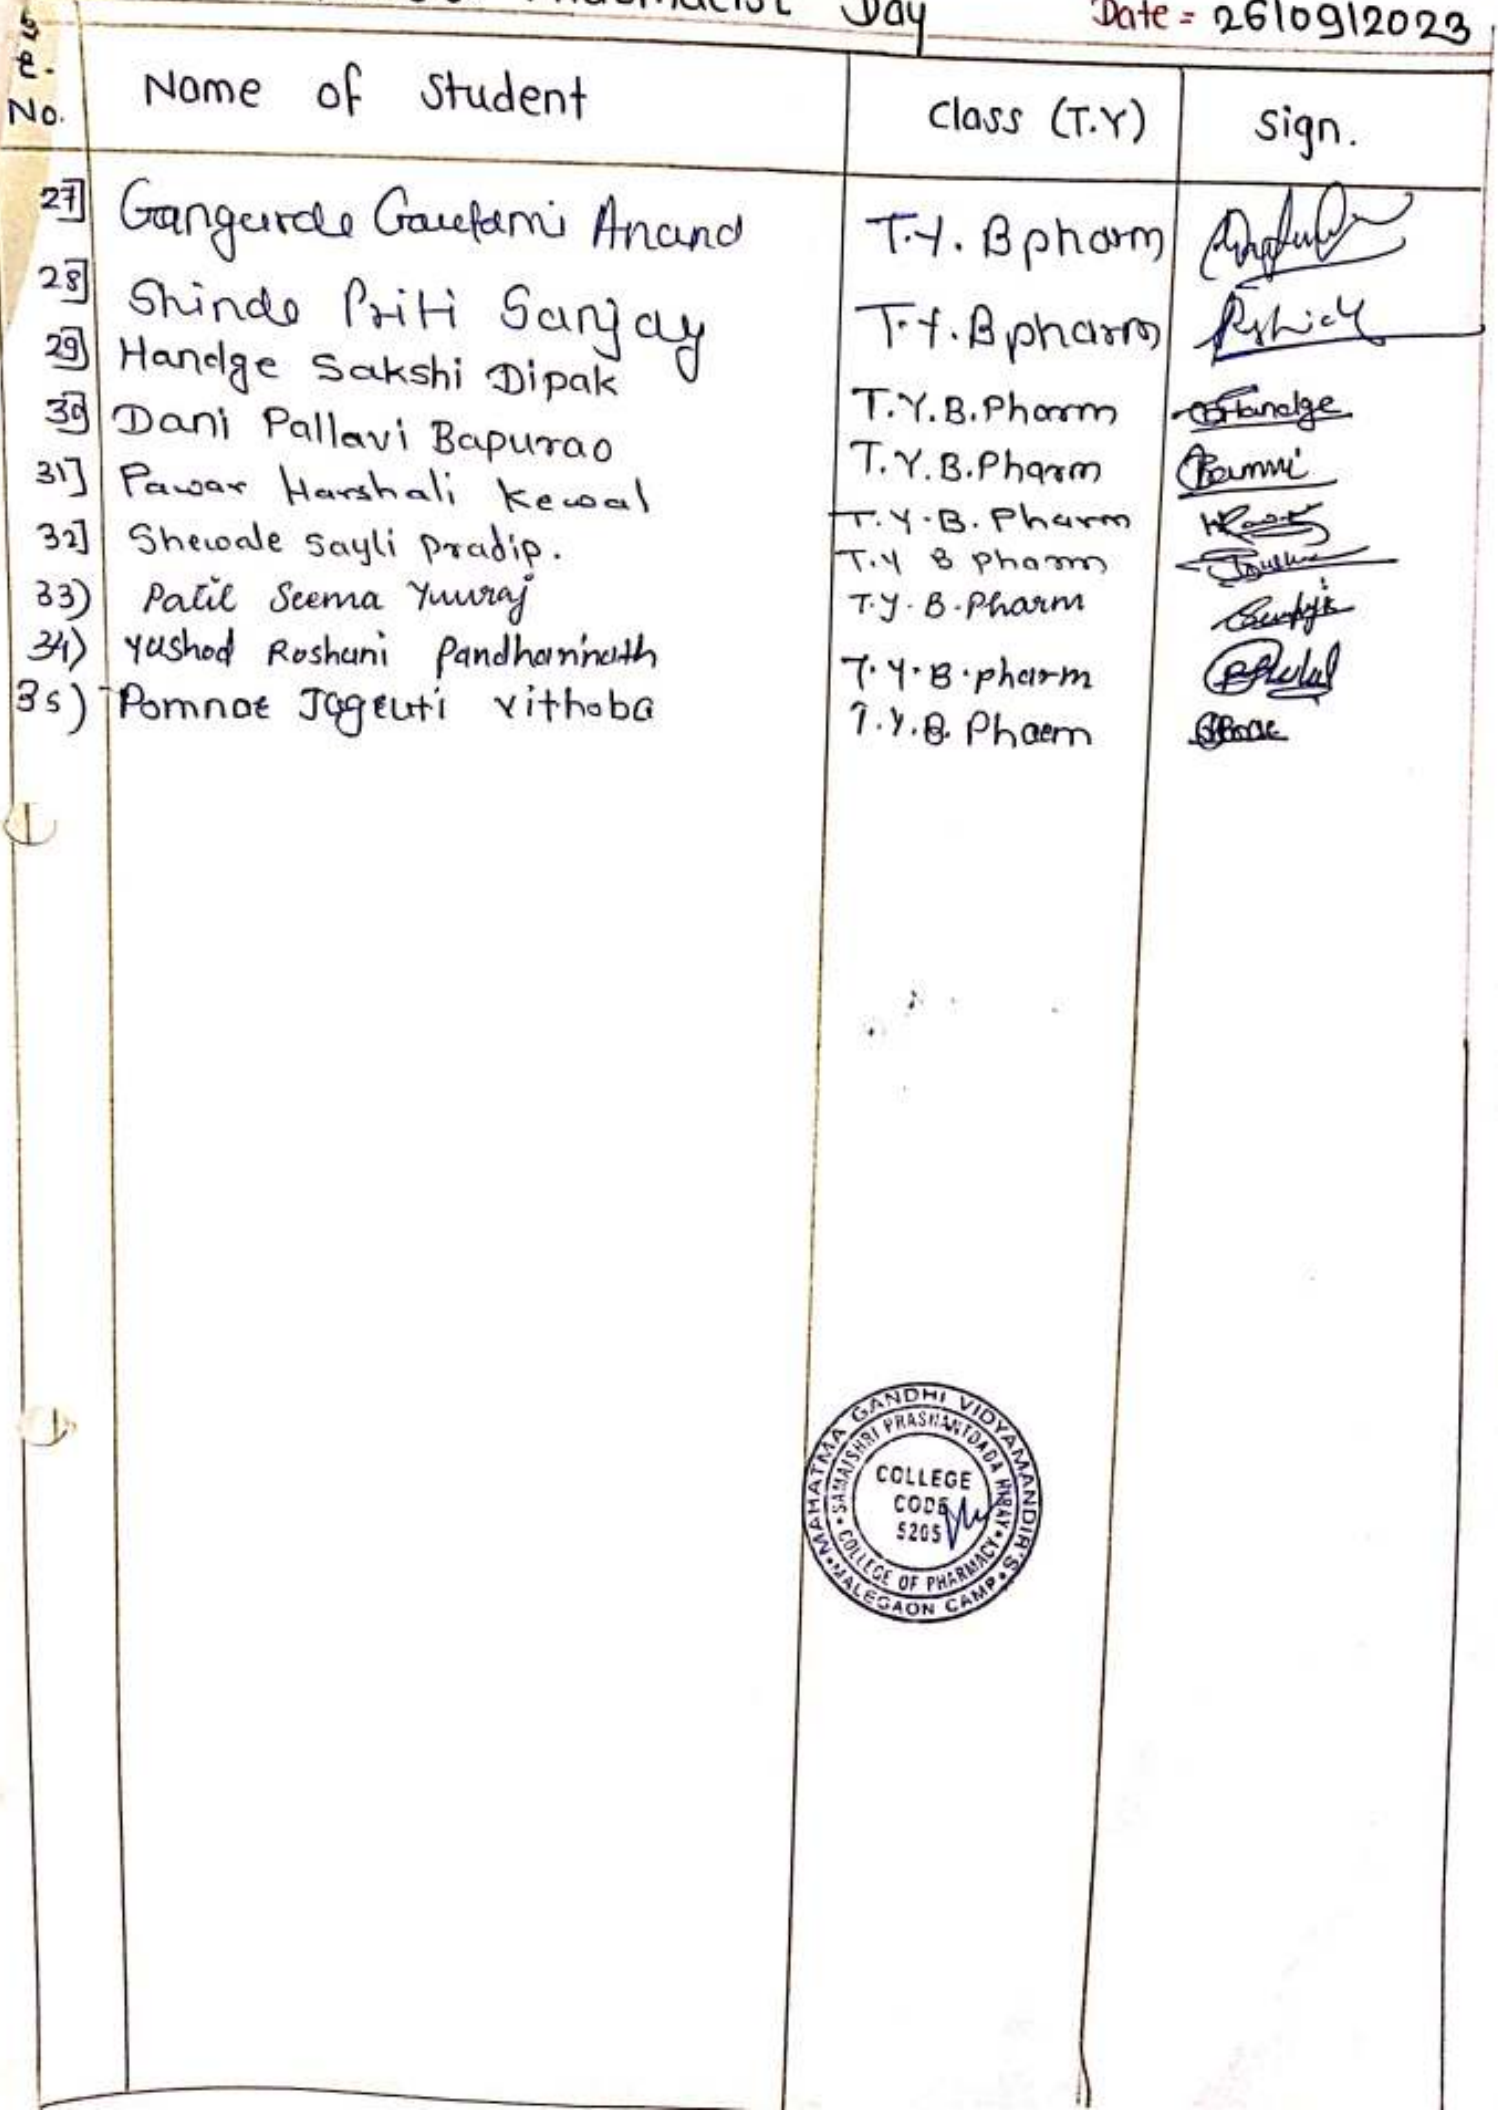 Pharmacist Day Date = 26/09/2023
Sr. No. Name of Student Class (T.Y) Sign.
27] Gangurde Gautami Anand T.Y. B pharm
28] Shinde Priti Sanjay T.Y. B pharm
29] Handge Sakshi Dipak T.Y.B.Pharm Handge
30] Dani Pallavi Bapurao T.Y.B.Pharm
31] Pawar Harshali Kewal T.Y.B. Pharm
32] Shewale Sayli Pradip. T.Y B Pharm
33) Patil Seema Yuvraj T.Y. B.Pharm
34) Yashod Roshani Pandharinath T.Y.B.pharm
35) Pomnar Jagruti Vithoba T.Y.B. Pharm
MAHATMA GANDHI VIDYAMANDIR'S
SAMAJSHRI PRASHANTDADA HIRAY
COLLEGE
CODE
5205
COLLEGE OF PHARMACY
MALEGAON CAMP